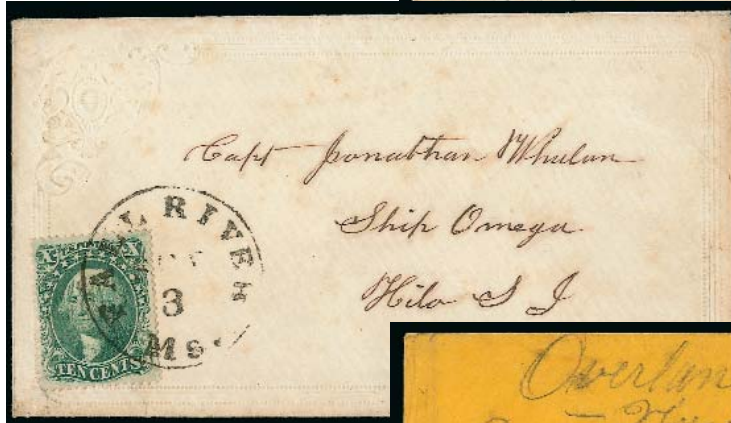 Capt Jonathan Whalan
Ship Omega
Hilo S I
FALL RIVER
3
Ms.
TEN CENTS
Overlan